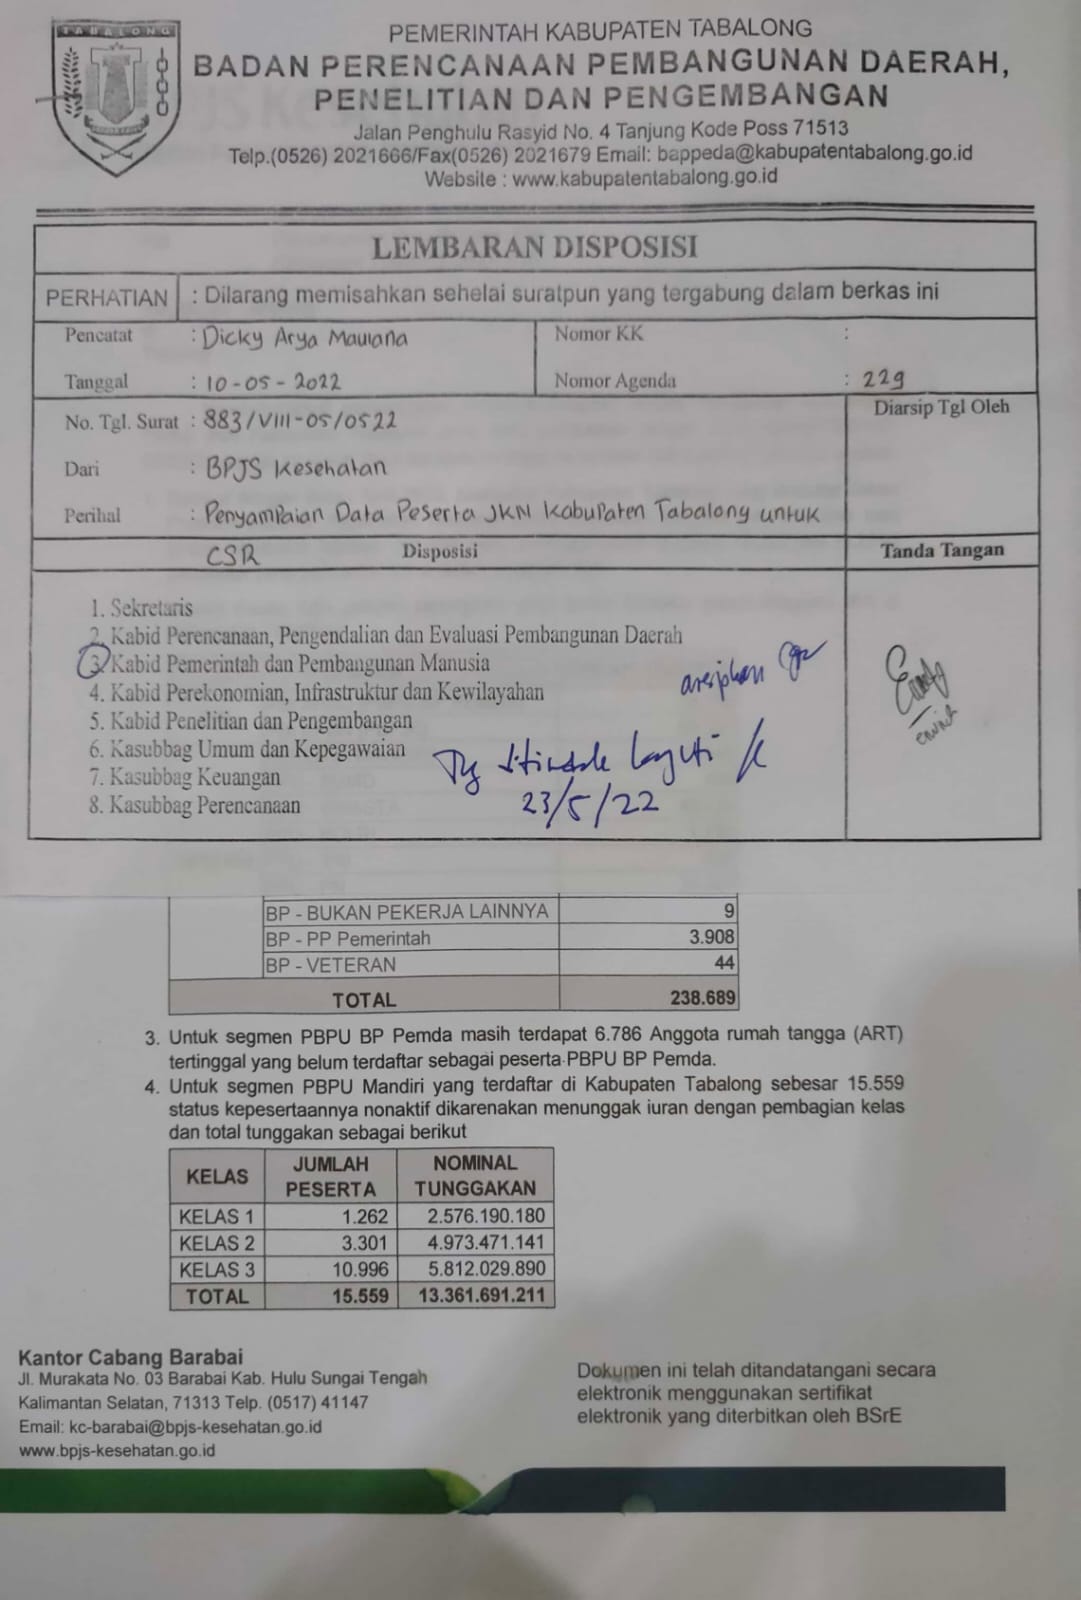 TABALONG
PEMERINTAH KABUPATEN TABALONG
BADAN PERENCANAAN PEMBANGUNAN DAERAH,
PENELITIAN DAN PENGEMBANGAN
Jalan Penghulu Rasyid No. 4 Tanjung Kode Poss 71513
Telp.(0526) 2021666/Fax(0526) 2021679 Email: bappeda@kabupatentabalong.go.id
Website : www.kabupatentabalong.go.id
LEMBARAN DISPOSISI
PERHATIAN : Dilarang memisahkan sehelai suratpun yang tergabung dalam berkas ini
Pencatat : Dicky Arya Maulana Nomor KK :
Tanggal : 10-05-2022 Nomor Agenda : 229
No. Tgl. Surat : 883/VIII-05/0522 Diarsip Tgl Oleh
Dari : BPJS Kesehatan
Perihal : Penyampaian Data Peserta JKN Kabupaten Tabalong untuk
CSR Disposisi Tanda Tangan
1. Sekretaris
2. Kabid Perencanaan, Pengendalian dan Evaluasi Pembangunan Daerah
3. Kabid Pemerintah dan Pembangunan Manusia
4. Kabid Perekonomian, Infrastruktur dan Kewilayahan
5. Kabid Penelitian dan Pengembangan
6. Kasubbag Umum dan Kepegawaian
7. Kasubbag Keuangan
23/5/22
8. Kasubbag Perencanaan
BP - BUKAN PEKERJA LAINNYA 9
BP - PP Pemerintah 3.908
BP - VETERAN 44
TOTAL 238.689
3. Untuk segmen PBPU BP Pemda masih terdapat 6.786 Anggota rumah tangga (ART)
tertinggal yang belum terdaftar sebagai peserta PBPU BP Pemda.
4. Untuk segmen PBPU Mandiri yang terdaftar di Kabupaten Tabalong sebesar 15.559
status kepesertaannya nonaktif dikarenakan menunggak iuran dengan pembagian kelas
dan total tunggakan sebagai berikut
KELAS JUMLAH PESERTA NOMINAL TUNGGAKAN
KELAS 1 1.262 2.576.190.180
KELAS 2 3.301 4.973.471.141
KELAS 3 10.996 5.812.029.890
TOTAL 15.559 13.361.691.211
Kantor Cabang Barabai
Jl. Murakata No. 03 Barabai Kab. Hulu Sungai Tengah
Kalimantan Selatan, 71313 Telp. (0517) 41147
Email: kc-barabai@bpjs-kesehatan.go.id
www.bpjs-kesehatan.go.id
Dokumen ini telah ditandatangani secara
elektronik menggunakan sertifikat
elektronik yang diterbitkan oleh BSrE